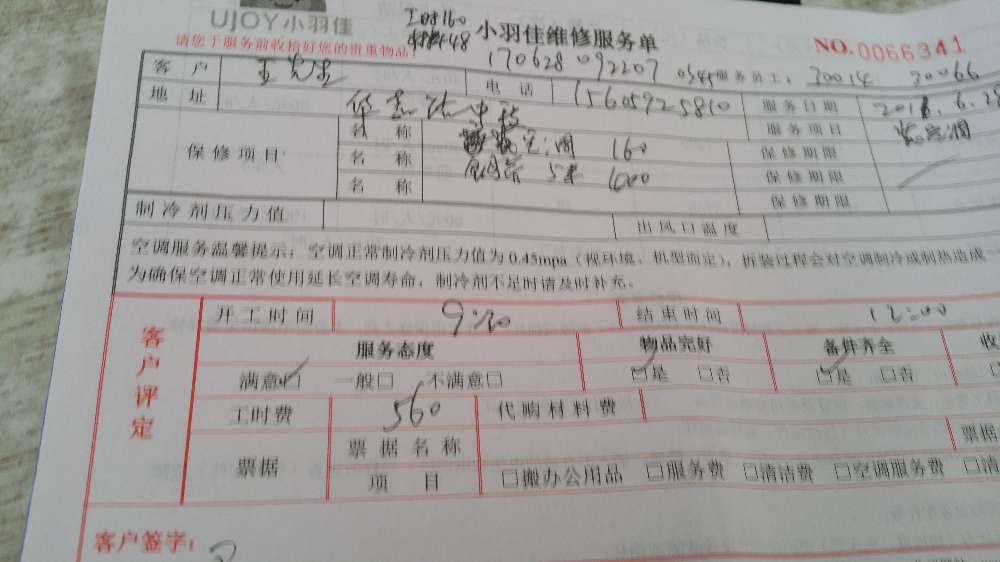 UJOY小羽佳
小羽佳维修服务单
NO.0066341
请您于服务前收拾好您的贵重物品!
170628 092207
服务员工: 30014 30066
客户 王先生 电话 15605925810 服务日期
地址 服务项目 装空调
保修项目 名称 空调 160 保修期限
名称 1000 保修期限
名称 保修期限
制冷剂压力值 出风口温度
空调服务温馨提示:空调正常制冷剂压力值为0.45mpa(视环境、机型而定),拆装过程会对空调制冷或制热造成
为确保空调正常使用延长空调寿命,制冷剂不足时请及时补充。
客户评定
开工时间 9:30 结束时间 12:00
服务态度 物品完好 备件齐全 收
满意☑ 一般□ 不满意□ ☑是 □否 ☑是 □否
工时费 560 代购材料费
票据 票据名称 票据
项目 □搬办公用品 □服务费 □清洁费 □空调服务费 □清
客户签字: